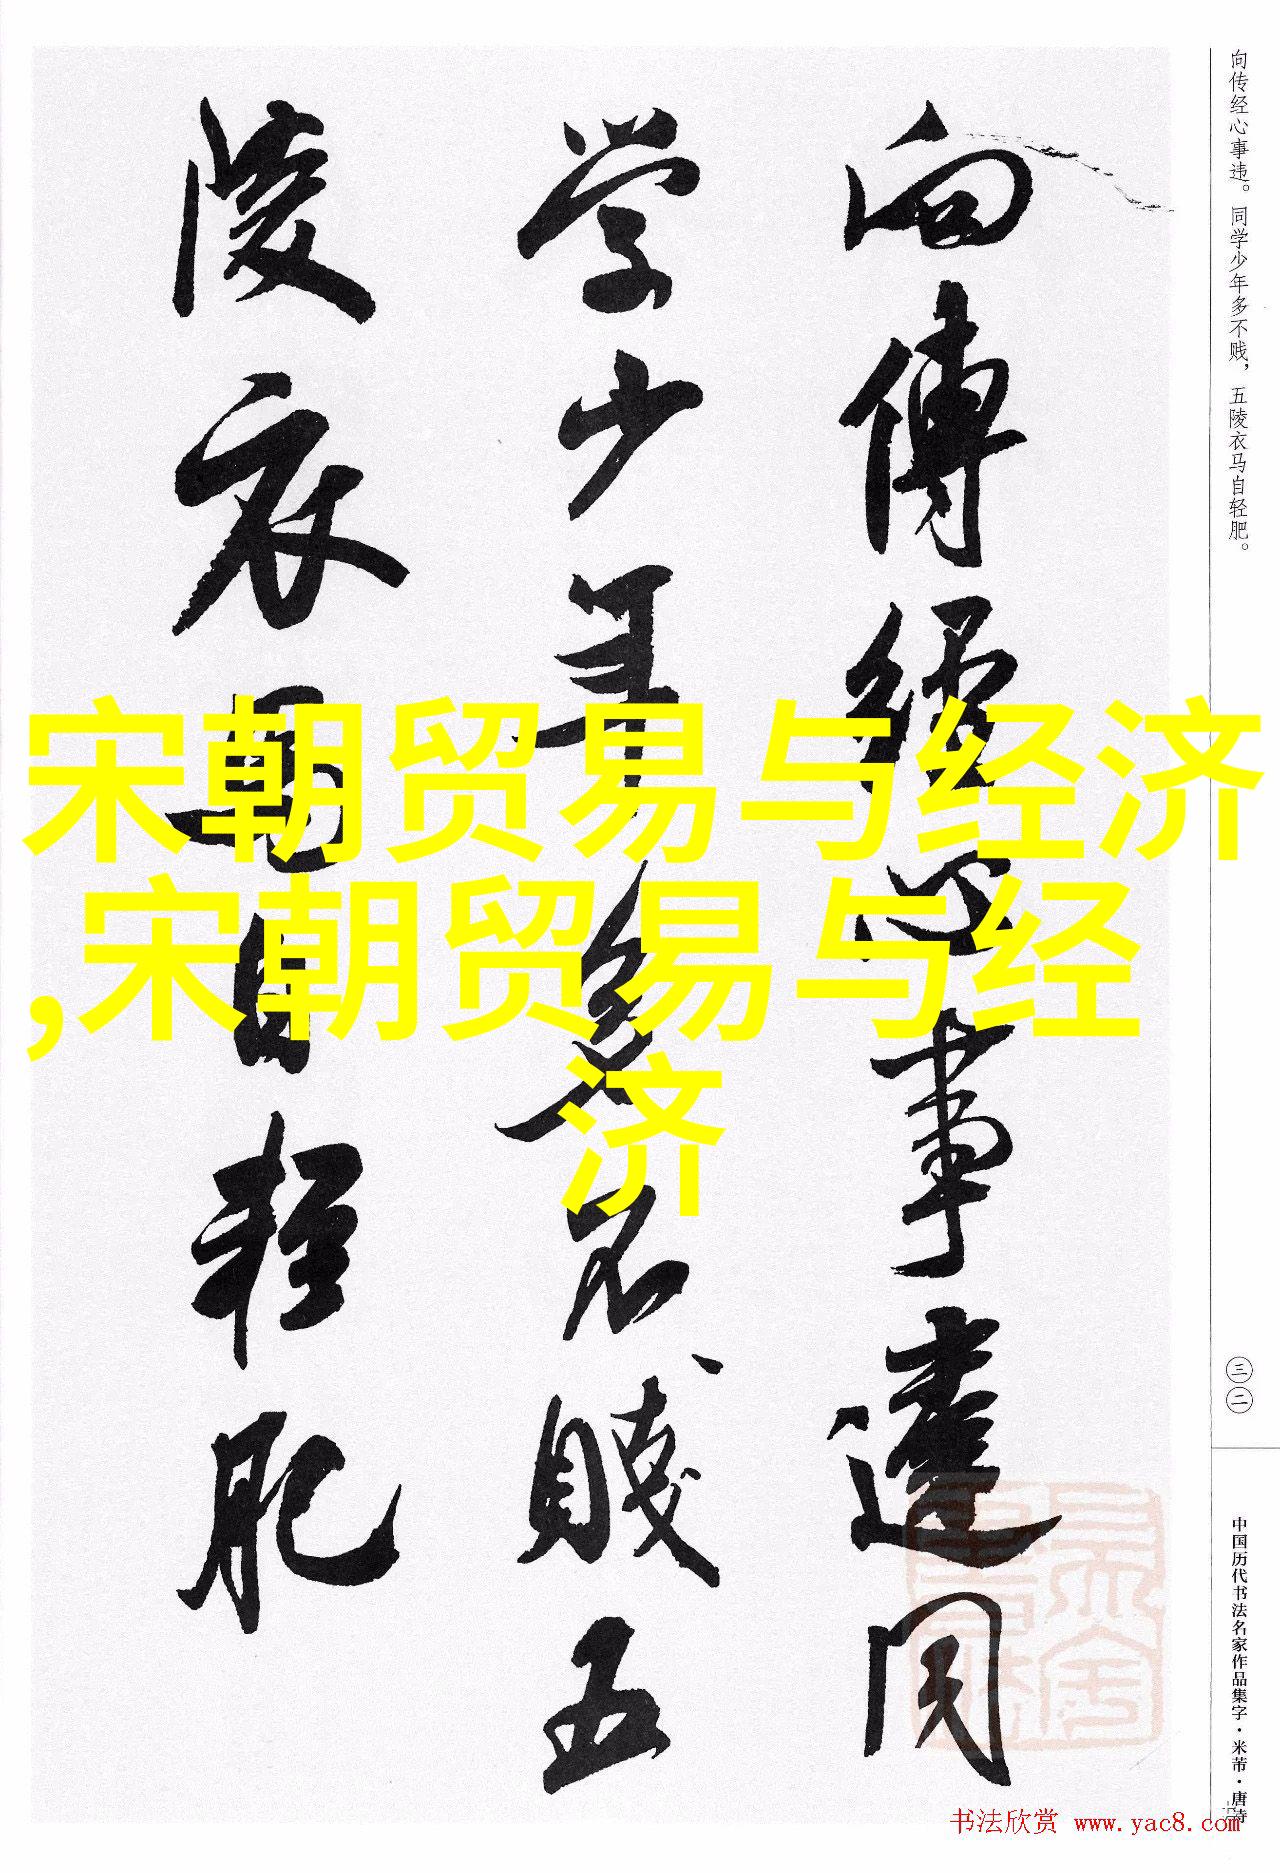 向傳經心事違同
学少年多不賤五
陵衣馬自輕肥
宋朝贸易与经济
,宋朝贸易与经
济
向传经心事违。同学少年多不贱，五陵衣马自轻肥。
三二
中国历代书法名家作品集字·米芾·唐诗
书法欣赏 www.yac8.com